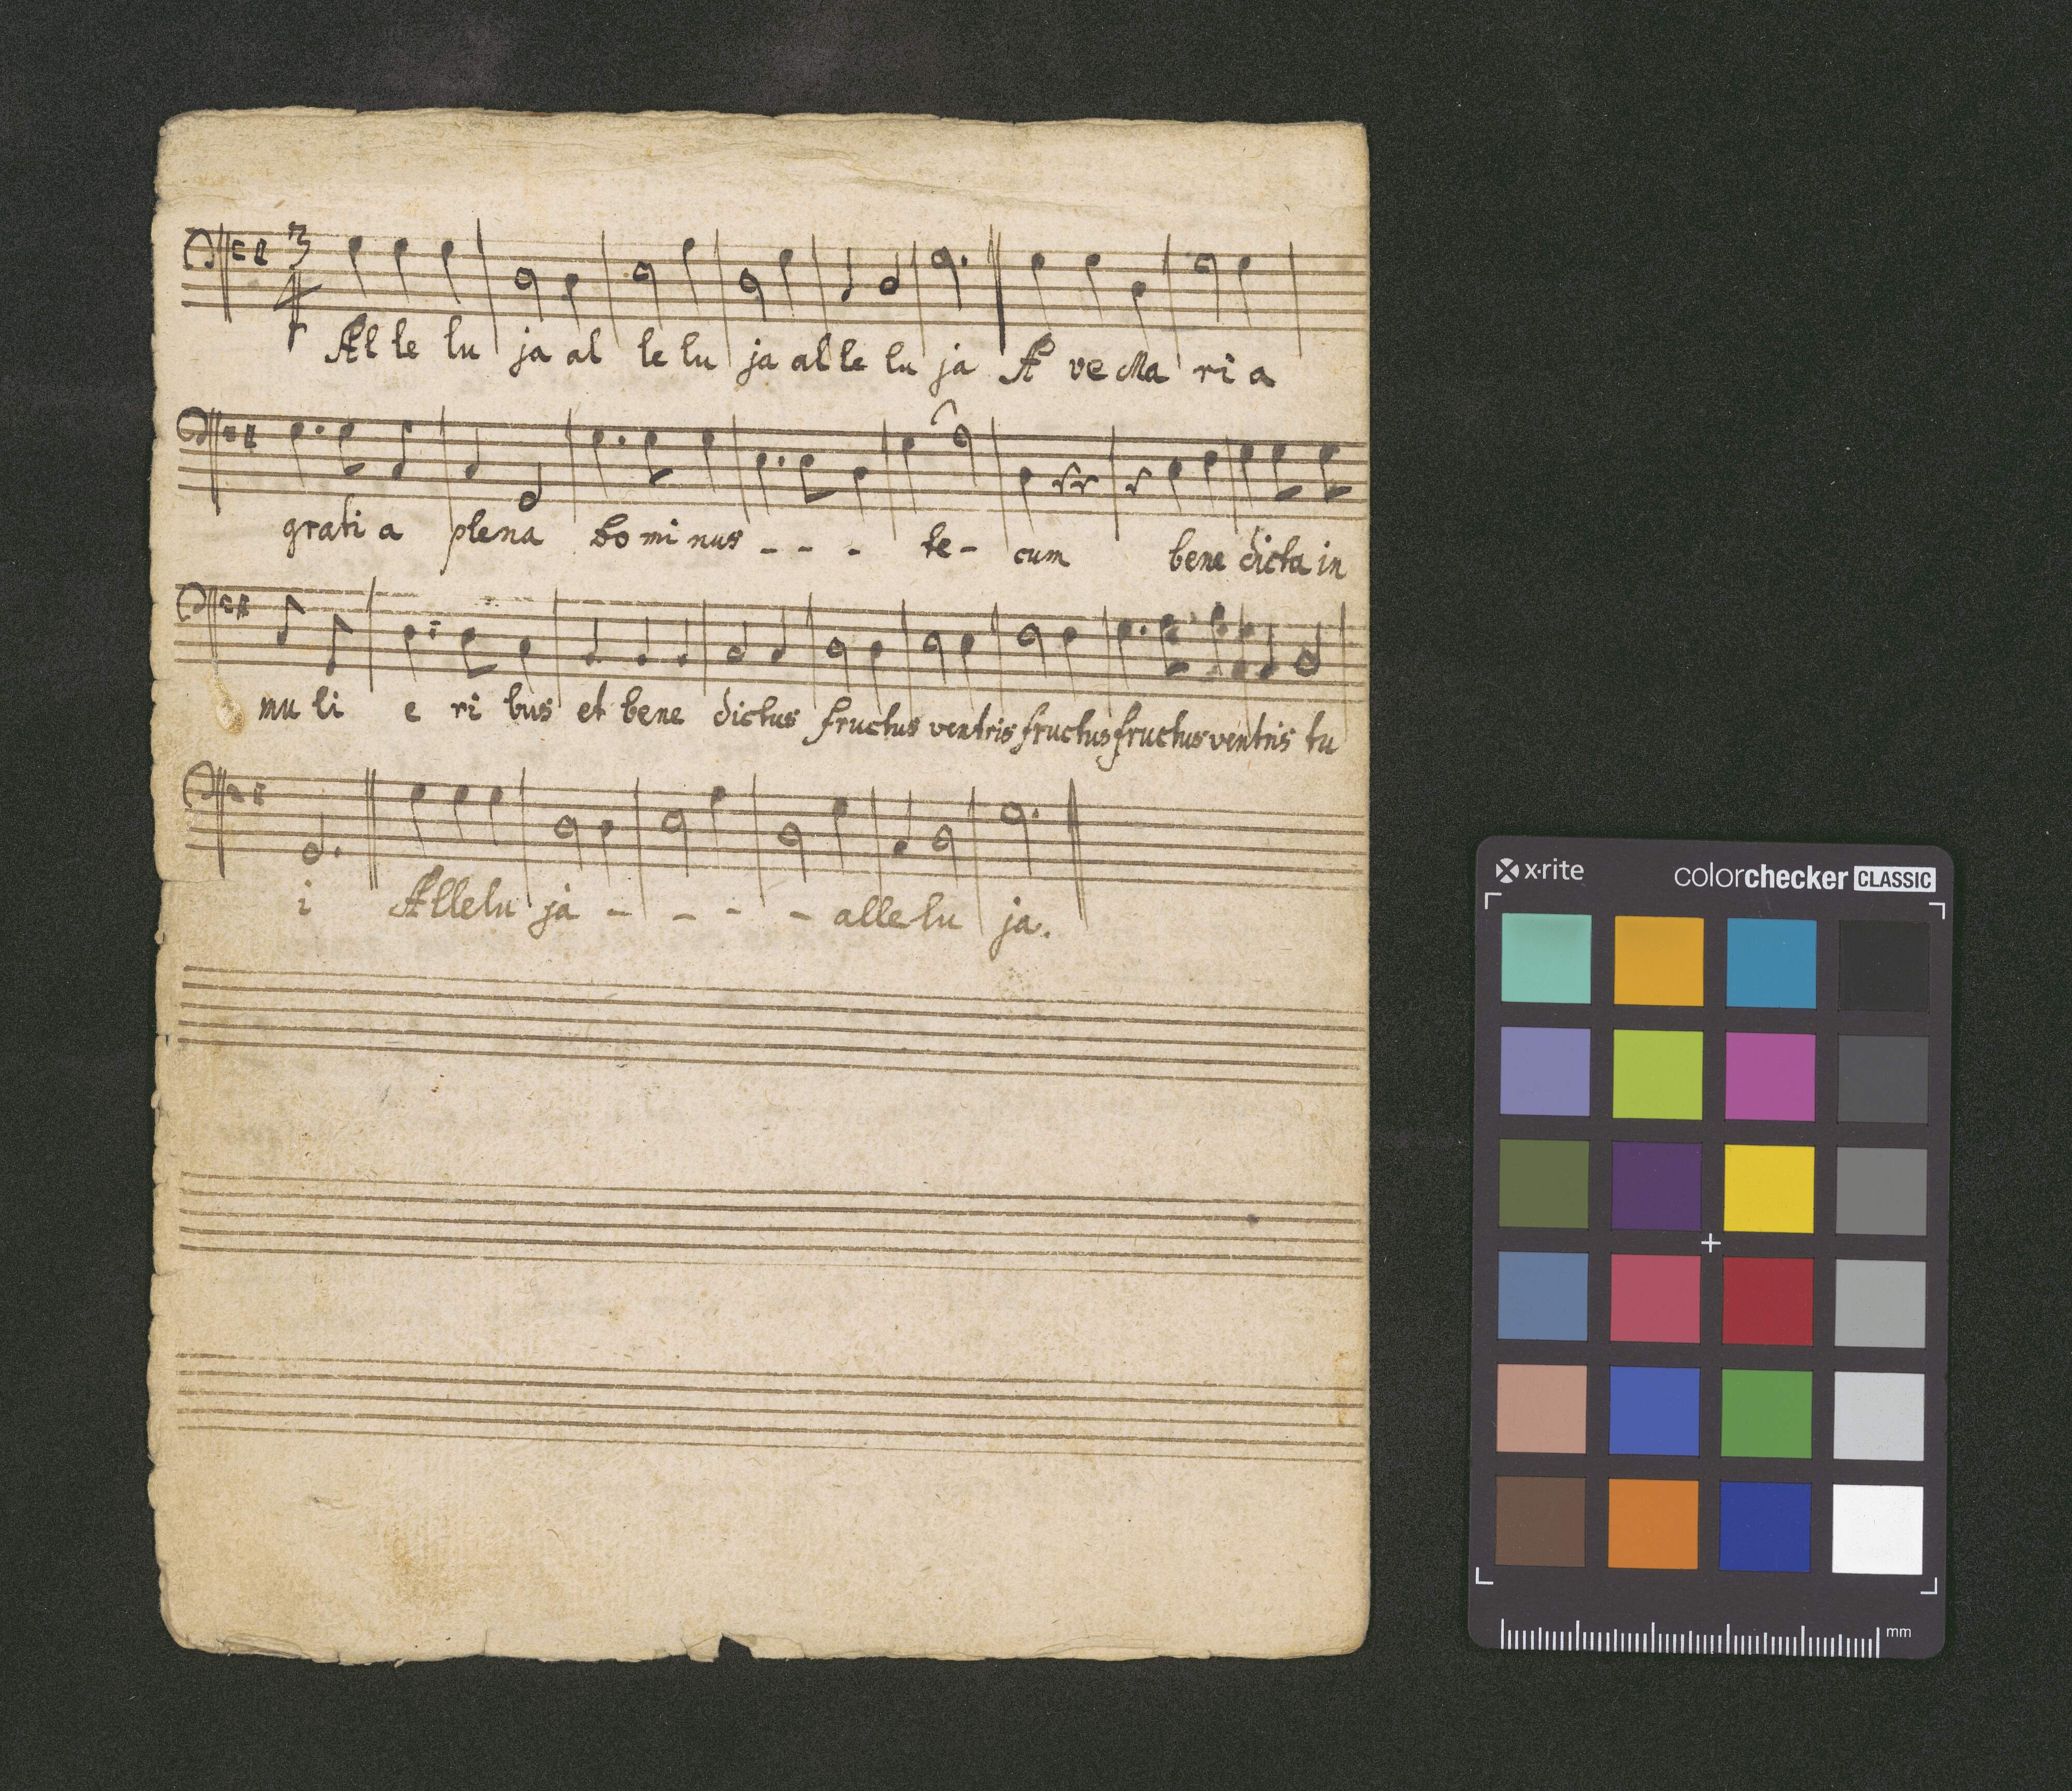 3
4
Al le lu ja al le lu ja al le lu ja A ve Ma ri a
grati a plena Do mi nus - - - te - cum bene dicta in
mu li e ri bus et bene dictus fructus ventris fructus fructus ventris tu
i Allelu ja - - - - allelu ja.
x·rite colorchecker CLASSIC
mm